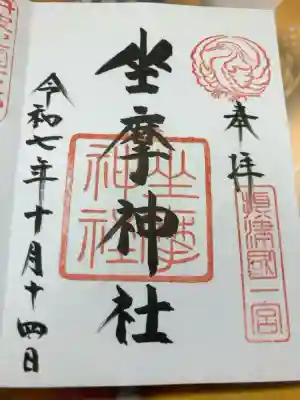 奉拝
摂津国一宮
坐摩神社
坐摩神社
令和七年十月十四日